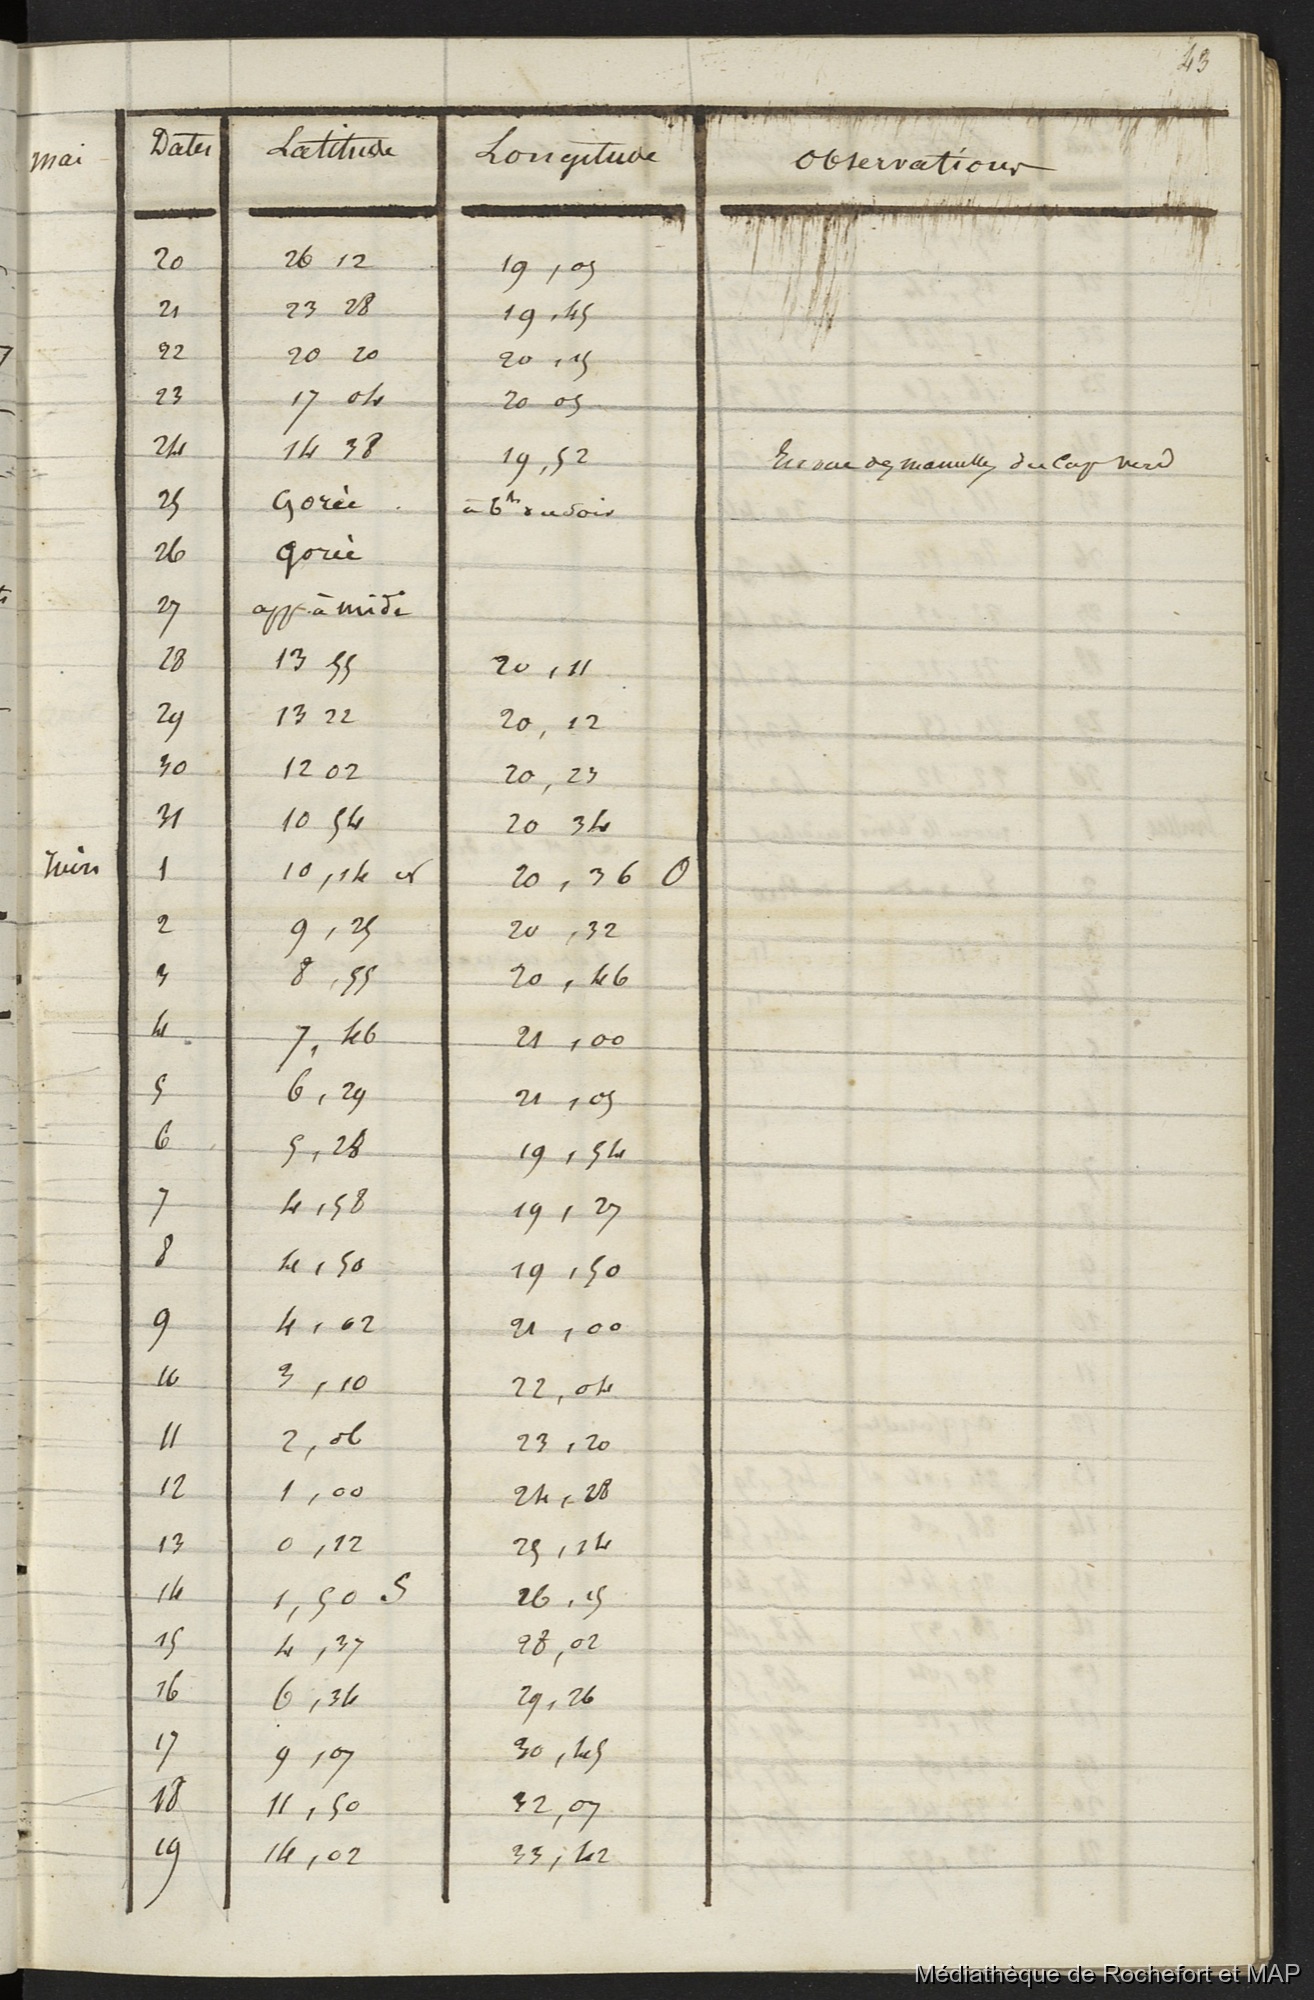 43
mai Dates Latitude Longitude Observations
20 26 12 19, 05
21 23 28 19, 45
22 20 20 20, 15
23 17 04 20 05
24 14 38 19, 52 En vue des mamelles du Cap Verd
25 Gorée à 6h du soir
26 Gorée
27 app. à midi
28 13 55 20, 11
29 13 22 20, 12
30 12 02 20, 23
31 10 54 20 34
Juin 1 10, 14 N 20, 36 O
2 9, 25 20, 32
3 8, 55 20, 46
4 7, 46 21, 00
5 6, 29 21, 05
6 5, 28 19, 54
7 4, 58 19, 27
8 4, 50 19, 50
9 4, 02 21, 00
10 3, 10 22, 04
11 2, 06 23, 20
12 1, 00 24, 28
13 0, 22 25, 14
14 1, 50 S 26, 15
15 4, 37 28, 02
16 6, 34 29, 26
17 9, 07 30, 45
18 11, 50 32, 07
19 14, 02 33, 42
Médiathèque de Rochefort et MAP